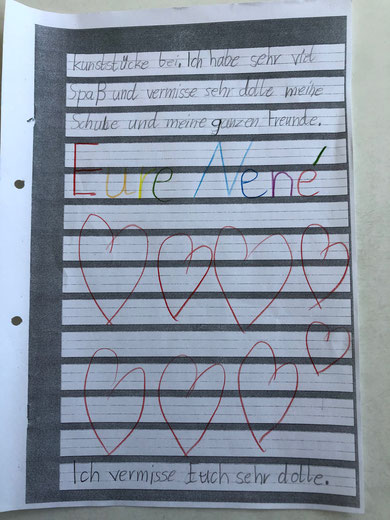 kunststücke bei. Ich habe sehr viel
Spaß und vermisse sehr dolle meine
Schule und meine ganzen Freunde.
Eure Nené
Ich vermisse Euch sehr dolle.